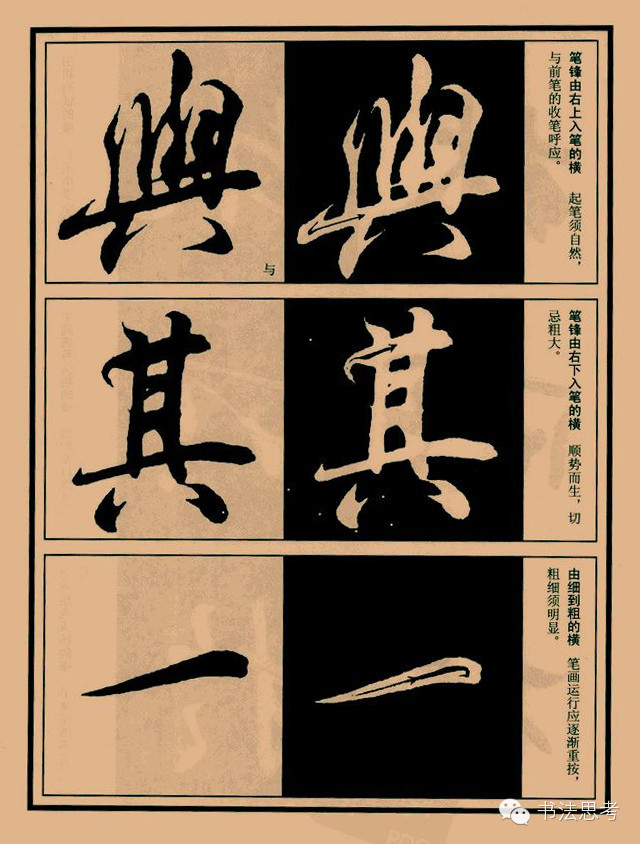 笔锋由右上入笔的横 起笔须自然，
与前笔的收笔呼应。
與
與
与
笔锋由右下入笔的横 顺势而生，切
忌粗大。
其
其
由细到粗的横 笔画运行应逐渐重按，
粗细须明显。
一
一
书法思考